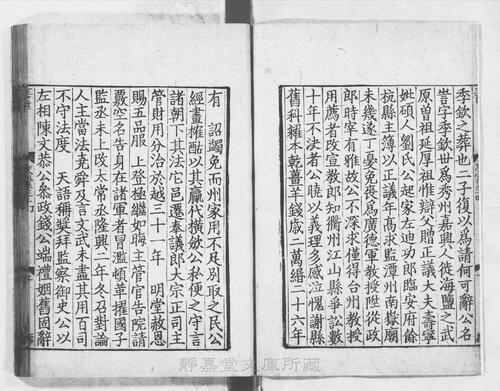 季欽之葬也二子復以爲請何可辭公名
訔字季欽世爲秀州嘉興人徙海鹽之武
原曾祖延厚祖惟辯父贈正議大夫壽寧
妣碩人劉氏公起家左迪功郎臨安府餘
抗縣主簿以正議年高求監潭州南嶽廟
未幾遂丁憂免喪爲廣德軍教授陞從政
郎時宰有雅故公不深求僅得台州教授
用薦者改宣教郎知衢州江山縣爭訟數
十年不決者公曉以義理多感泣愧謝縣
舊科糴本乾薑羊錢歲二萬緡二十六年
有　詔蠲免而州家用不足别取之民公
經畫榷酤以其贏代橫斂公私便之守言
諸朝下其法它邑遷奉議郎大宗正司主
管財用分治於越三十一年　明堂赦恩
賜五品服　上登極繼如晦主管官告院請
覈空名告身在諸軍者冒濫頓革擢國子
監丞未上改太常丞隆興二年冬召對論
人主當法堯舜及言文武未盡其用百司
不守法度　天語稱奬拜監察御史公以
左相陳文恭公參政錢公端禮姻舊固辭
靜嘉堂文庫所藏